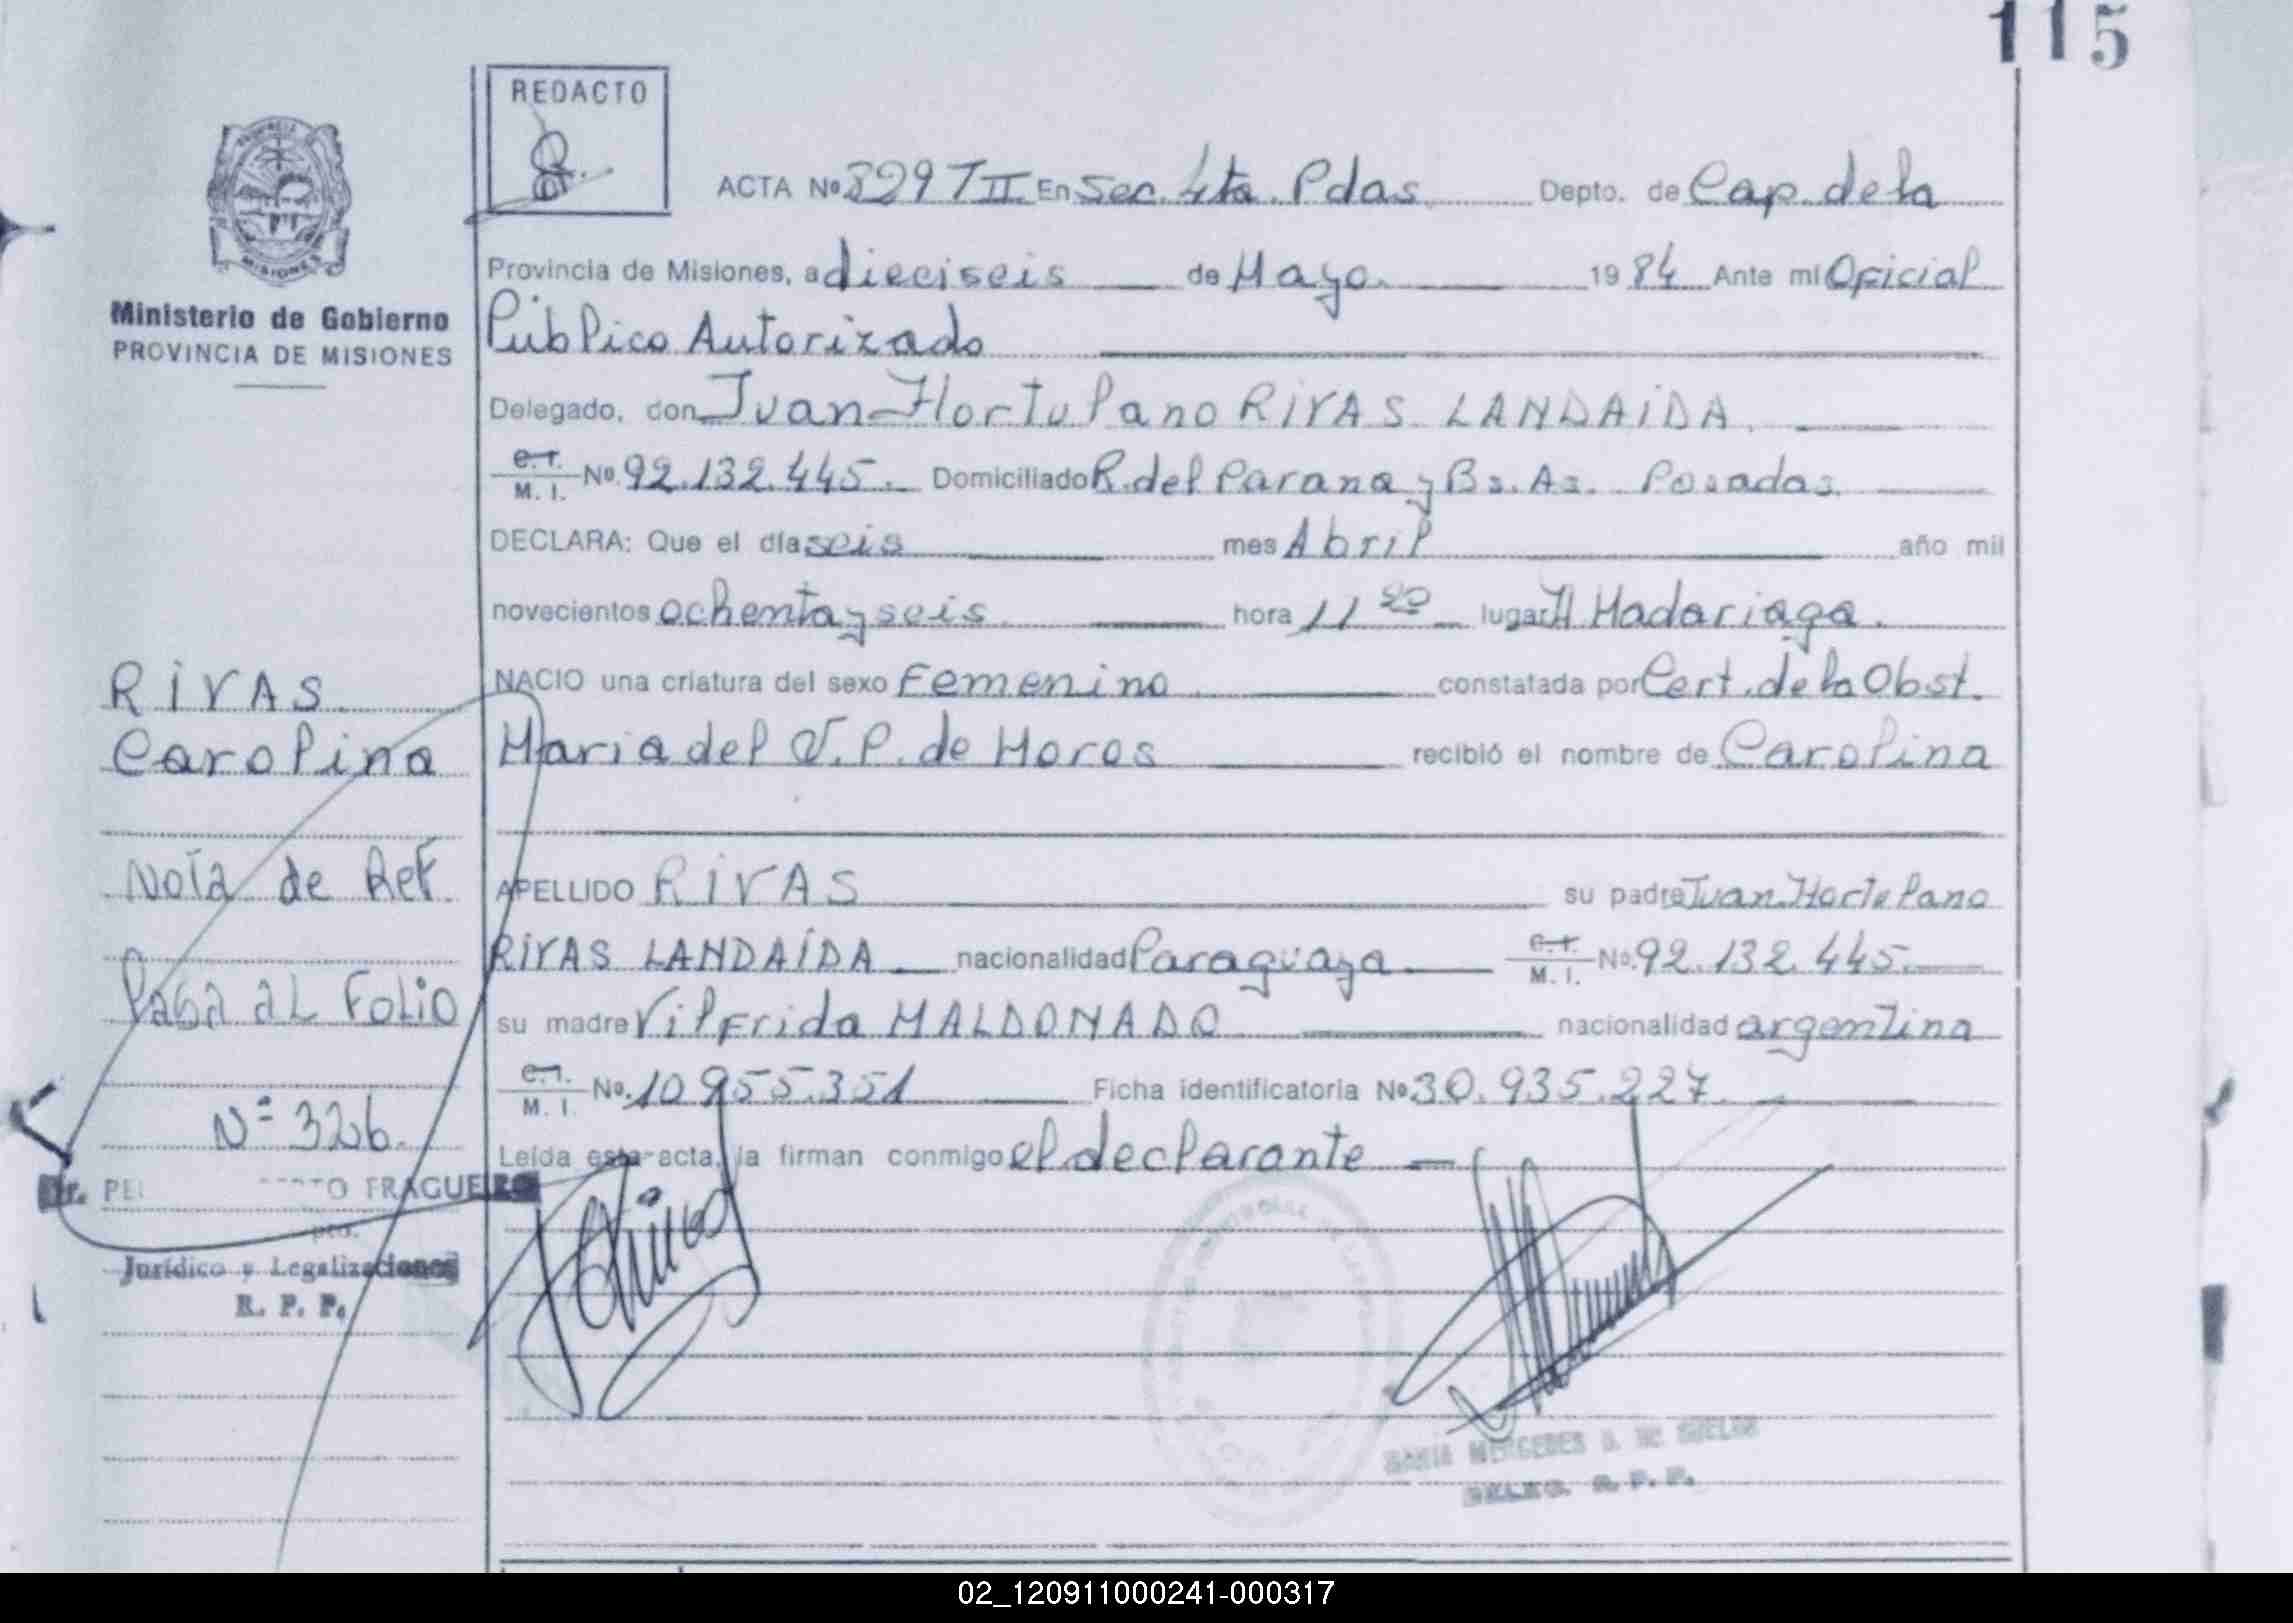 115
REDACTO
ACTA Nº 829 T II En Sec. 4ta. Pdas. Depto. de Cap. de la
PROVINCIA
MISIONES
Provincia de Misiones, a dieciseis de Mayo. 19 84 Ante mi Oficial
Ministerio de Gobierno
PROVINCIA DE MISIONES
Público Autorizado
Delegado, don Juan Hortulano RIVAS LANDAIDA.
C. I.
M. I.
Nº. 92.132.445. Domiciliado R. del Parana y Bs. As. Posadas.
DECLARA: Que el día seis mes Abril año mil
novecientos ochenta y seis hora 11 20 lugar H Madariaga.
RIVAS
Carolina
NACIO una criatura del sexo Femenino constatada por Cert. de la Obst.
Maria del V. P. de Moros recibió el nombre de Carolina
Nota de Ref.
Pasa al Folio
Nº 326.
APELLIDO RIVAS su padre Juan Hortulano
RIVAS LANDAIDA nacionalidad Paraguaya C. I.
M. I. Nº. 92.132.445.
su madre Vilfrida MALDONADO nacionalidad argentina
C. I.
M. I.
Nº. 10.955.351 Ficha identificatoria Nº 30.935.227.
Leída esta acta, la firman conmigo el declarante
Dr. FRAGUEIRO
Jurídico y Legalizaciones
R. P. P.
MARIA MERCEDES
R. P. P.
02_120911000241-000317